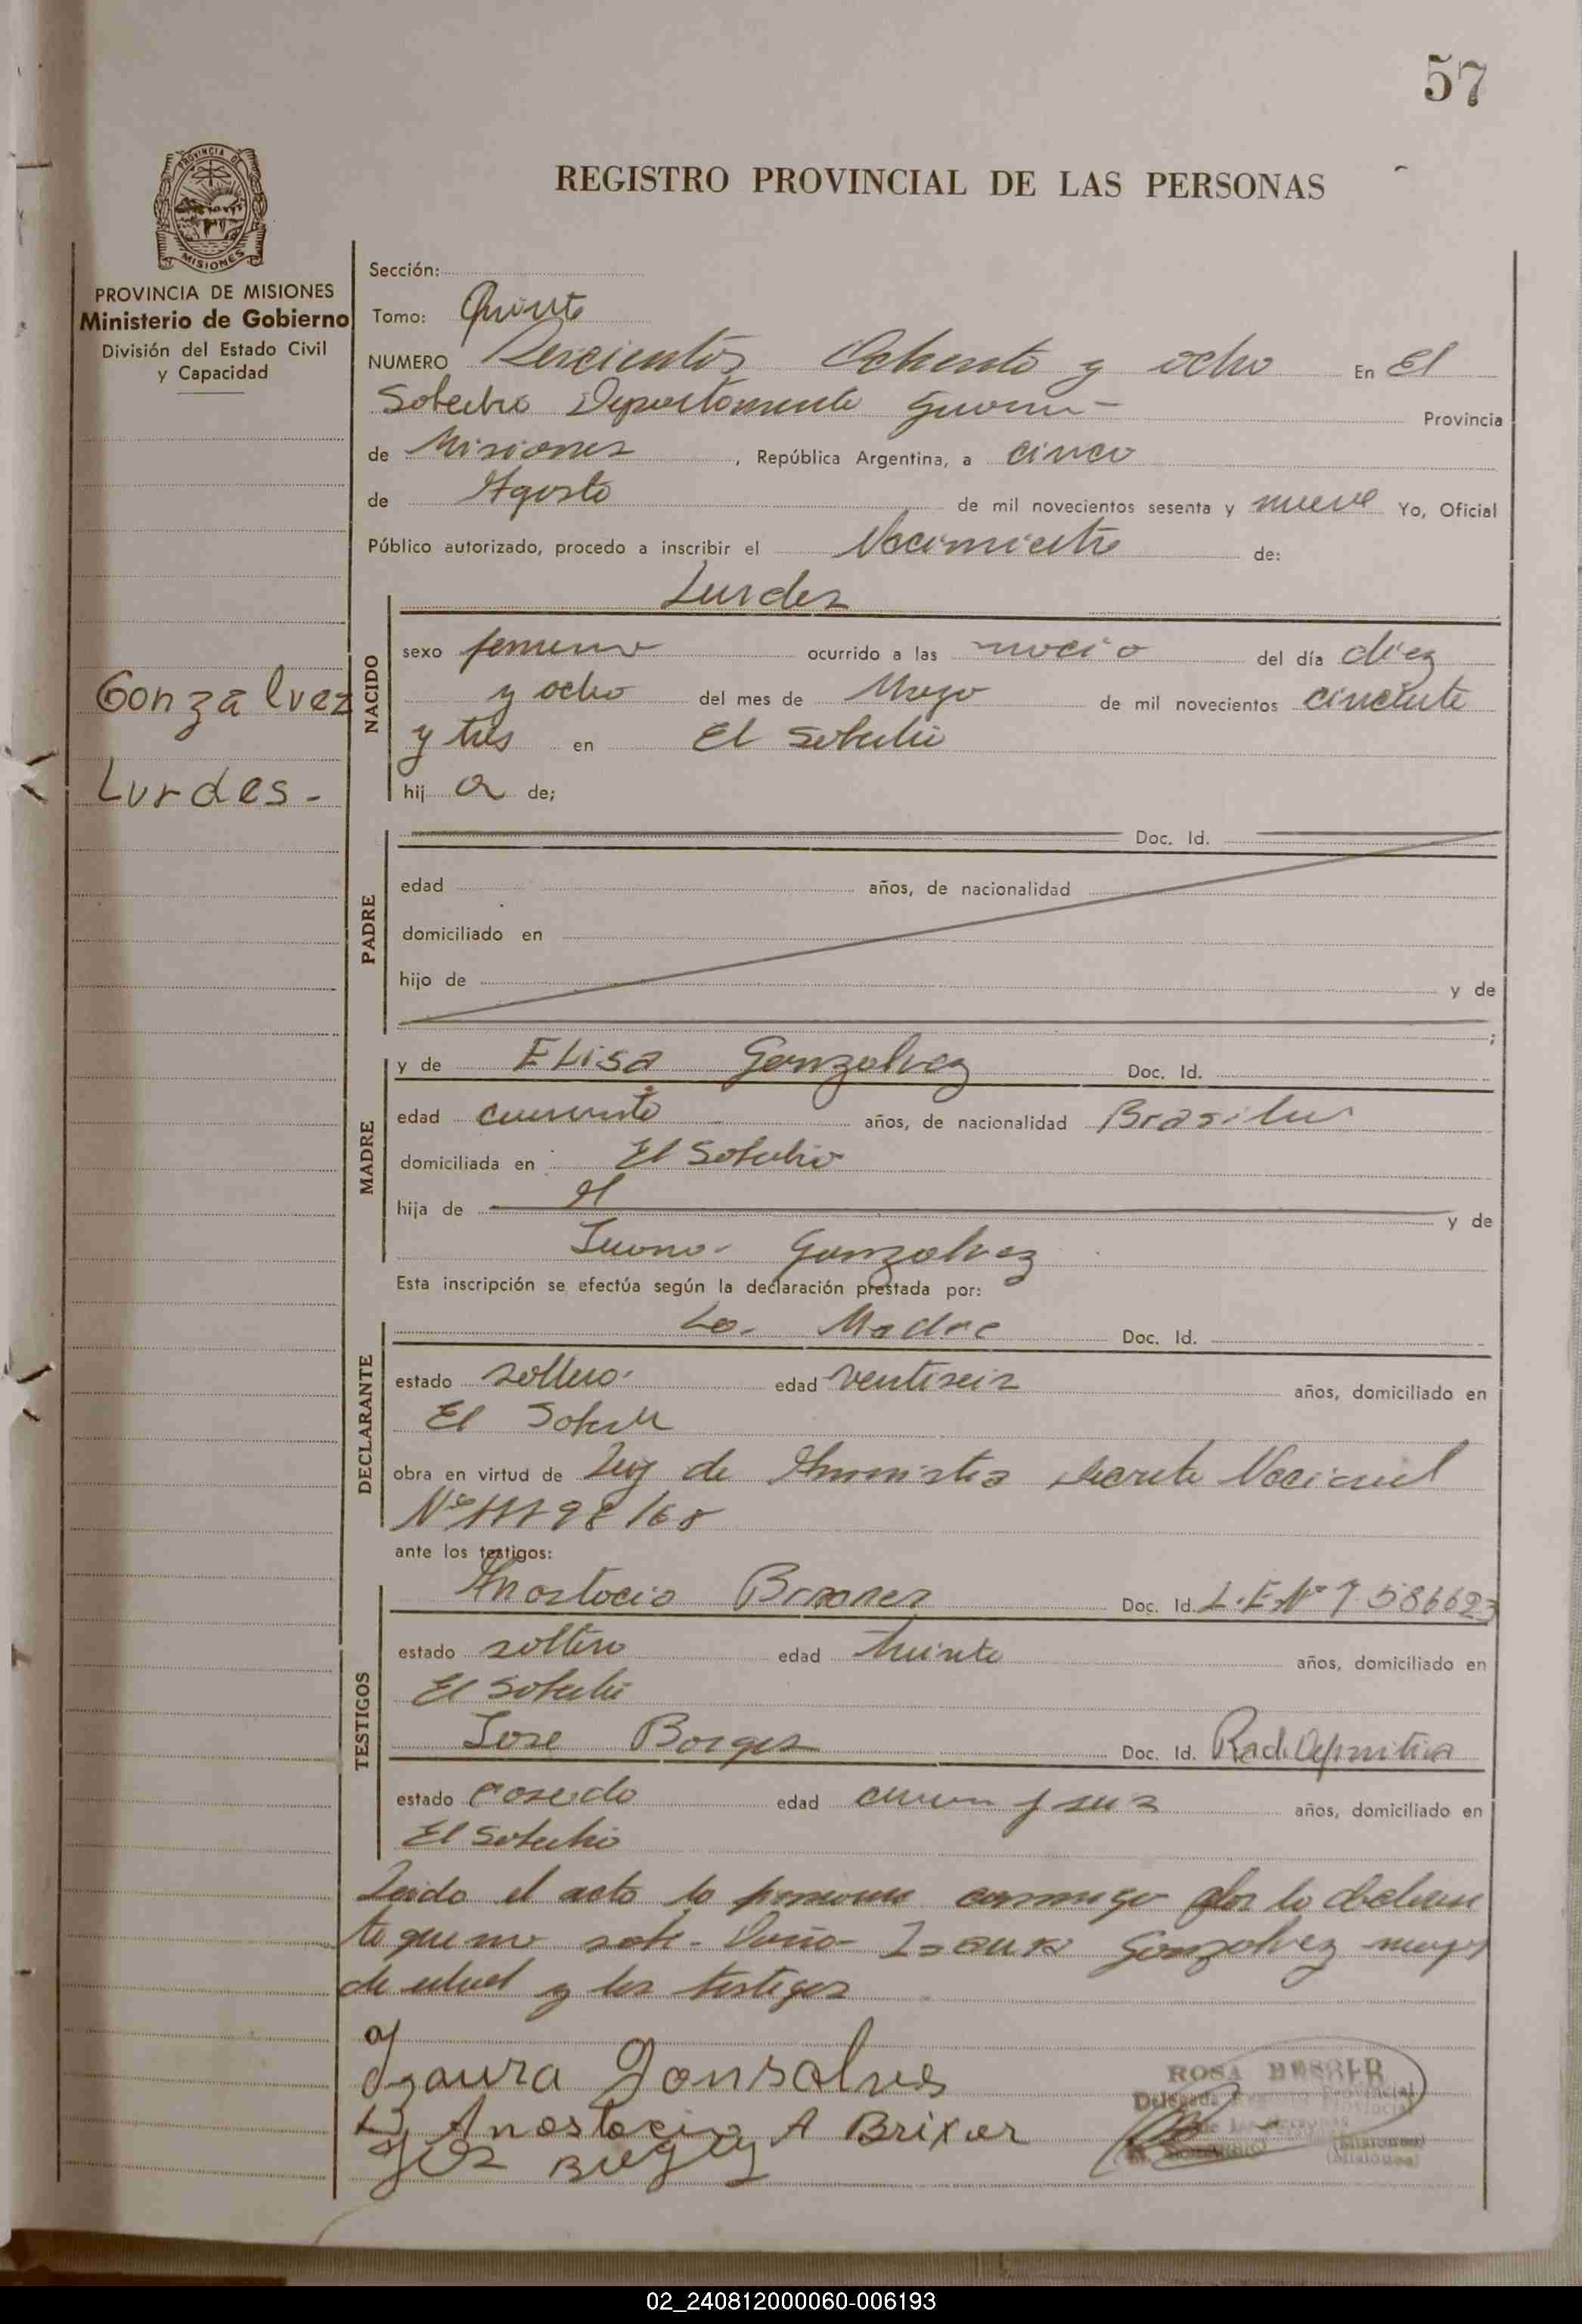 57
REGISTRO PROVINCIAL DE LAS PERSONAS
PROVINCIA DE
MISIONES
PROVINCIA DE MISIONES
Ministerio de Gobierno
División del Estado Civil
y Capacidad
Gonzalvez
Lurdes -
Sección:
Tomo: Quinto
NUMERO Ochenta y ocho En El
Soberbio Departamento Provincia
de Misiones , República Argentina, a cinco
de Agosto de mil novecientos sesenta y nueve Yo, Oficial
Público autorizado, procedo a inscribir el Nacimiento de:
Lurdes
NACIDO
sexo femenino ocurrido a las del día diez
y ocho del mes de Mayo de mil novecientos cincuenta
y tres en El Soberbio
hij a de;
PADRE
Doc. Id.
edad años, de nacionalidad
domiciliado en
hijo de y de
;
MADRE
y de Elisa Gonzalvez Doc. Id.
edad años, de nacionalidad
domiciliada en El Soberbio
hija de y de
Gonzalvez
Esta inscripción se efectúa según la declaración prestada por:
DECLARANTE
La Madre Doc. Id.
estado edad ventiseis años, domiciliado en
El
obra en virtud de Ley de Amnistia Nacional
Nº
ante los testigos:
TESTIGOS
Anastacio Doc. Id. L.E.Nº 7.586623
estado soltero edad treinta años, domiciliado en
El Soberbio
Jose Borges Doc. Id. Rad. Definitiva
estado casado edad años, domiciliado en
El Soberbio
Leido el acta la conmigo por la
te que no Gonzalvez
de edad y los testigos
Izaura Gonsalves
Anastacio A Brixner
ROSA
Delegada Registro Provincial
de las Personas
(Misiones)
02_240812000060-006193